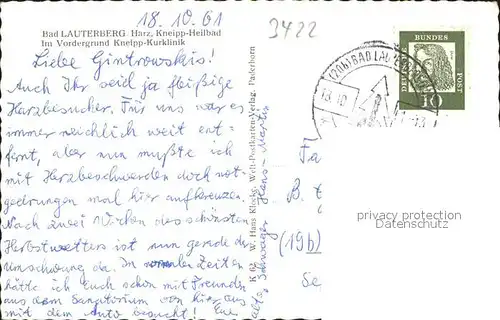 18.10.61
3422
Bad LAUTERBERG Harz, Kneipp-Heilbad
Im Vordergrund Kneipp-Kurklinik
Liebe Gintrowskis!
Auch Ihr seid ja fleißige
Harzbesucher. Für uns war es
immer reichlich weit ent-
fernt, aber nun mußte ich
mit Herzbeschwerden doch not-
gedrungen mal hier aufkreuzen.
Nach zwei Wochen des schönsten
Herbstwetters ist nun gerade der
Umschwung da. In normalen Zeiten
hätte ich Euch schon mit Freunden
aus dem Sanatorium von hier aus
mit dem Auto besucht! Eure
alte Schwager Hans-Martin
K 62 Hans Klocke, Welt-Postkarten-Verlag, Paderborn
(20b) BAD LAU
18.10
-13
DEUTSCHE
BUNDES
POST
10
Fa
B.
(19b)
Se
privacy protection
AnsichtskartenVersand.com